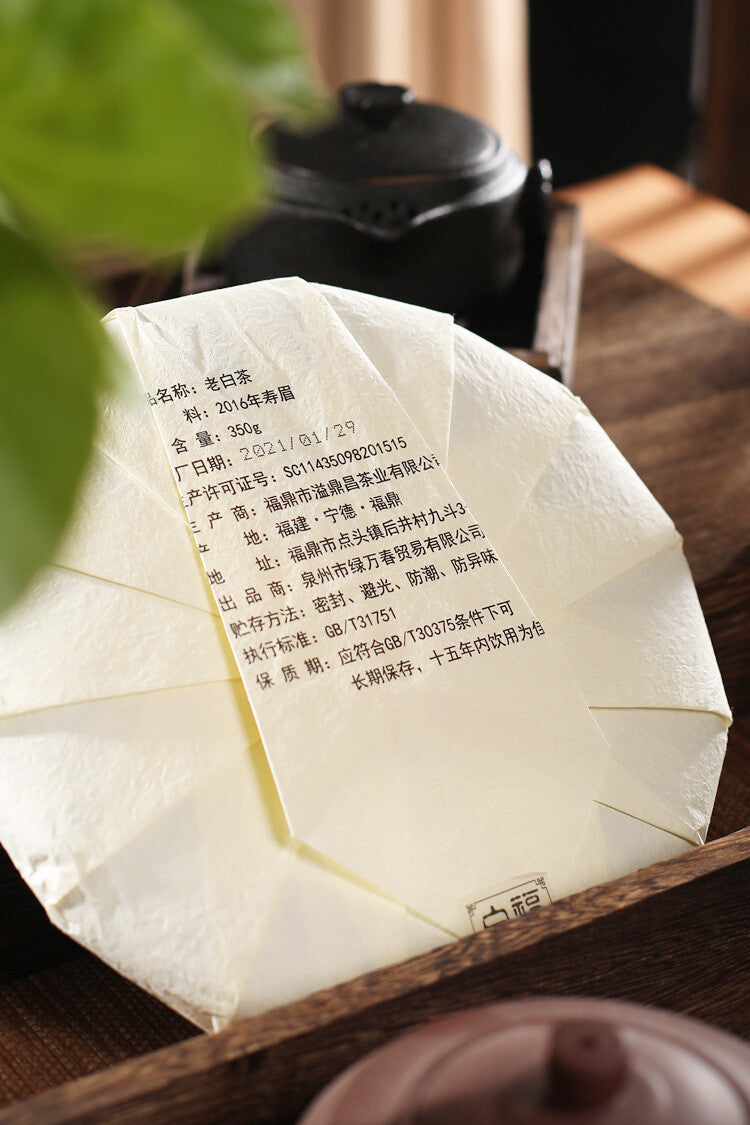 品名称：老白茶
料：2016年寿眉
含 量：350g
厂日期：2021/01/29
产许可证号：SC11435098201515
生 产 商：福鼎市溢鼎昌茶业有限公司
产 地：福建·宁德·福鼎
地 址：福鼎市点头镇后井村九斗3-
出 品 商：泉州市绿万春贸易有限公司
贮存方法：密封、避光、防潮、防异味
执行标准：GB/T31751
保 质 期：应符合GB/T30375条件下可
长期保存，十五年内饮用为佳
福
白